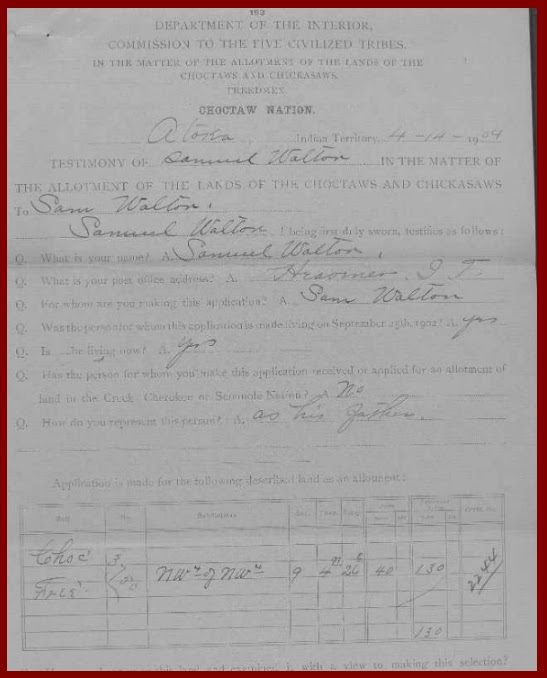 193
DEPARTMENT OF THE INTERIOR,
COMMISSION TO THE FIVE CIVILIZED TRIBES.
IN THE MATTER OF THE ALLOTMENT OF THE LANDS OF THE
CHOCTAWS AND CHICKASAWS,
FREEDMEN
CHOCTAW NATION.
Atoka, Indian Territory, 4-14-1904
TESTIMONY OF Samuel Walton IN THE MATTER OF
THE ALLOTMENT OF THE LANDS OF THE CHOCTAWS AND CHICKASAWS
To Sam Walton.
Samuel Walton, being first duly sworn, testifies as follows:
Q. What is your name? A. Samuel Walton.
Q. What is your post office address? A. I. T.
Q. For whom are you making this application? A. Sam Walton
Q. Was the person for whom this application is made living on September 25th, 1902? A. yes
Q. Is he living now? A. yes
Q. Has the person for whom you make this application received or applied for an allotment of
land in the Creek, Cherokee or Seminole Nation? A. No
Q. How do you represent this person? A. as his father.
Application is made for the following described land as an allotment:
Roll No. Sec.
Choc
NW4 of NW4 9 4 26 40 130
130
this land and examined it with a view to making this selection?